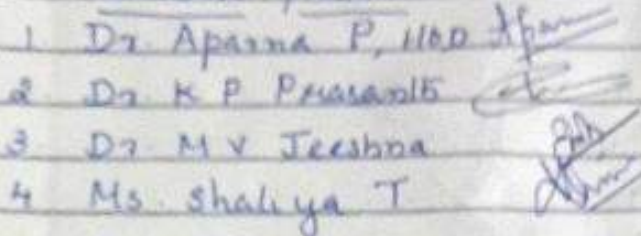 1 Dr. Aparna P, HOD
2 Dr K P Prasanth
3 Dr M V Jeeshna
4 Ms. Shaliya T